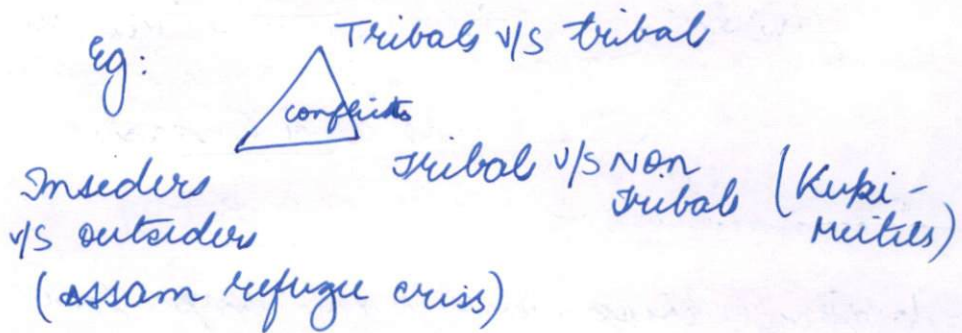 Eg:
Tribals v/s tribal
conflicts
Insiders
v/s outsiders
(Assam refugee criss)
Tribal v/s Non
Tribal (Kuki-
Meiteis)